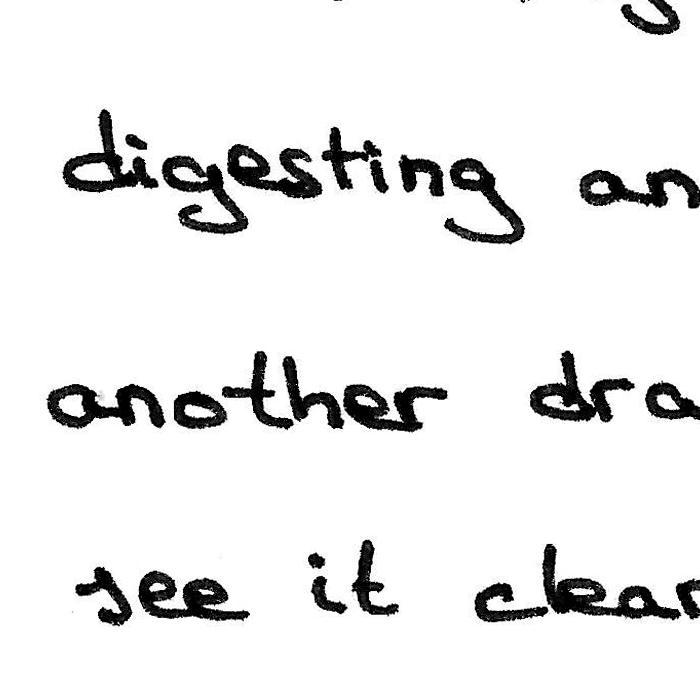 digesting an
another dra
see it clear